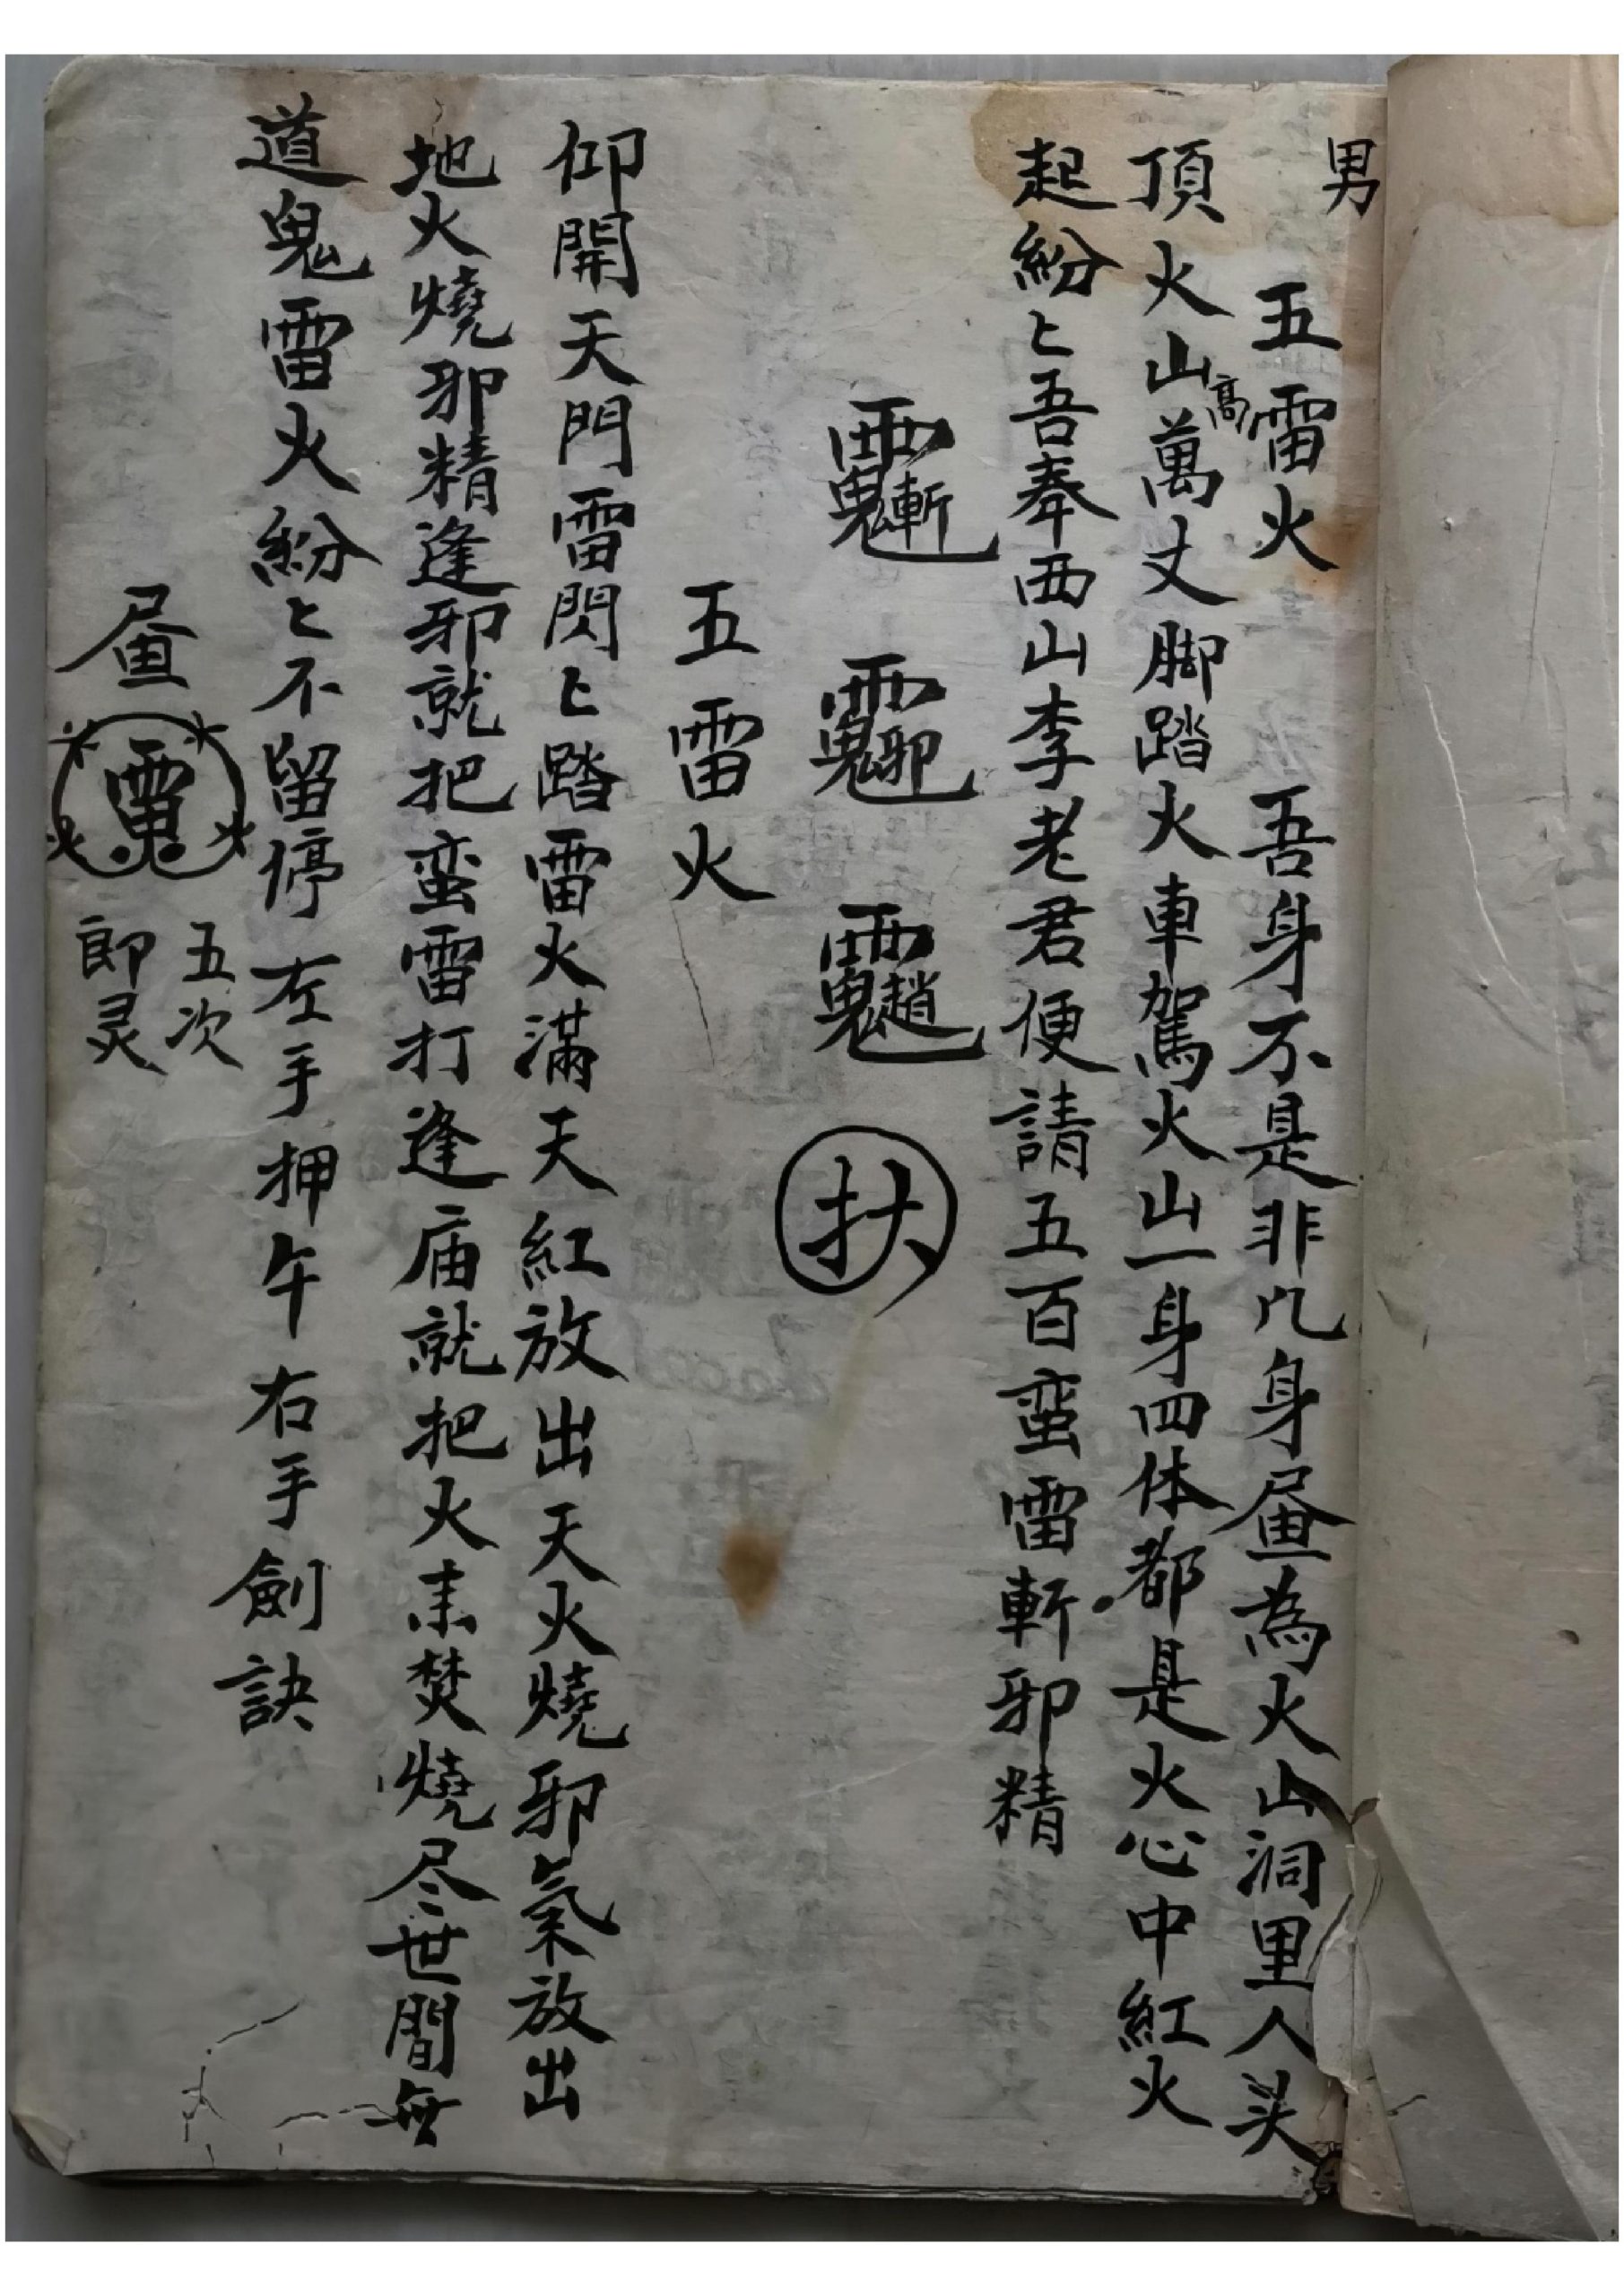 男
五雷火 吾身不是非凡身画為火山洞里人头
頂火山高萬丈脚踏火車駕火山一身四体都是火心中紅火
起紛々吾奉西山李老君便請五百蛮雷斬邪精
扶
五雷火
仰開天門雷閃々踏雷火滿天紅放出天火燒邪氣放出
地火燒邪精逢邪就把蛮雷打逢庙就把火来焚燒尽世間無
道鬼雷火紛々不留停左手押午右手劍訣
画
五次
即灵